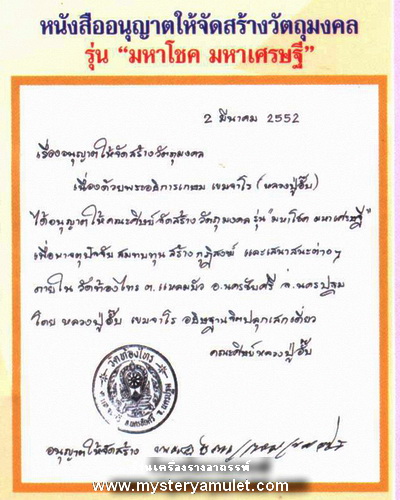 หนังสืออนุญาตให้จัดสร้างวัตถุมงคล
รุ่น “มหาโชค มหาเศรษฐี”
2 มีนาคม 2552
เรื่องอนุญาตให้จัดสร้างวัตถุมงคล
เนื่องด้วยพระอธิการเกษม เขมจาโร (หลวงปู่อั๊บ)
ได้อนุญาตให้คณะศิษย์จัดสร้างวัตถุมงคล รุ่น "มหาโชค มหาเศรษฐี"
เพื่อหาจตุปัจจัย สมทบทุน สร้างกุฏิสงฆ์ และเสนาสนะต่างๆ
ภายใน วัดท้องไทร ต.แหลมบัว อ.นครชัยศรี จ.นครปฐม
โดย หลวงปู่อั๊บ เขมจาโร อธิษฐานจิตปลุกเสกเดี่ยว
คณะศิษย์หลวงปู่อั๊บ
วัดท้องไทร
อนุญาตให้จัดสร้าง
เครื่องรางอาถรรพ์
www.mysteryamulet.com